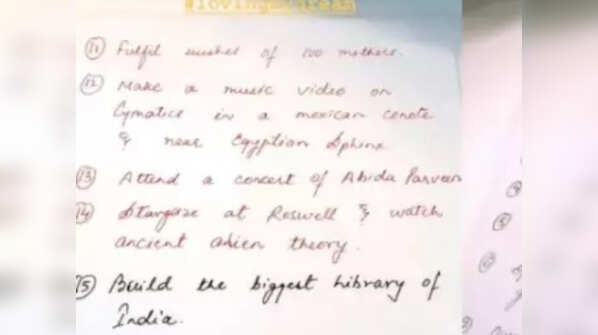 #lovingmydream
(11) Fulfil wishes of 100 mothers.
(12) Make a music video on
Cymatics in a mexican cenote
& near Egyptian Sphinx
(13) Attend a concert of Abida Parveen
(14) Stargaze at Roswell & watch
ancient alien theory.
(15) Build the biggest library of
India.